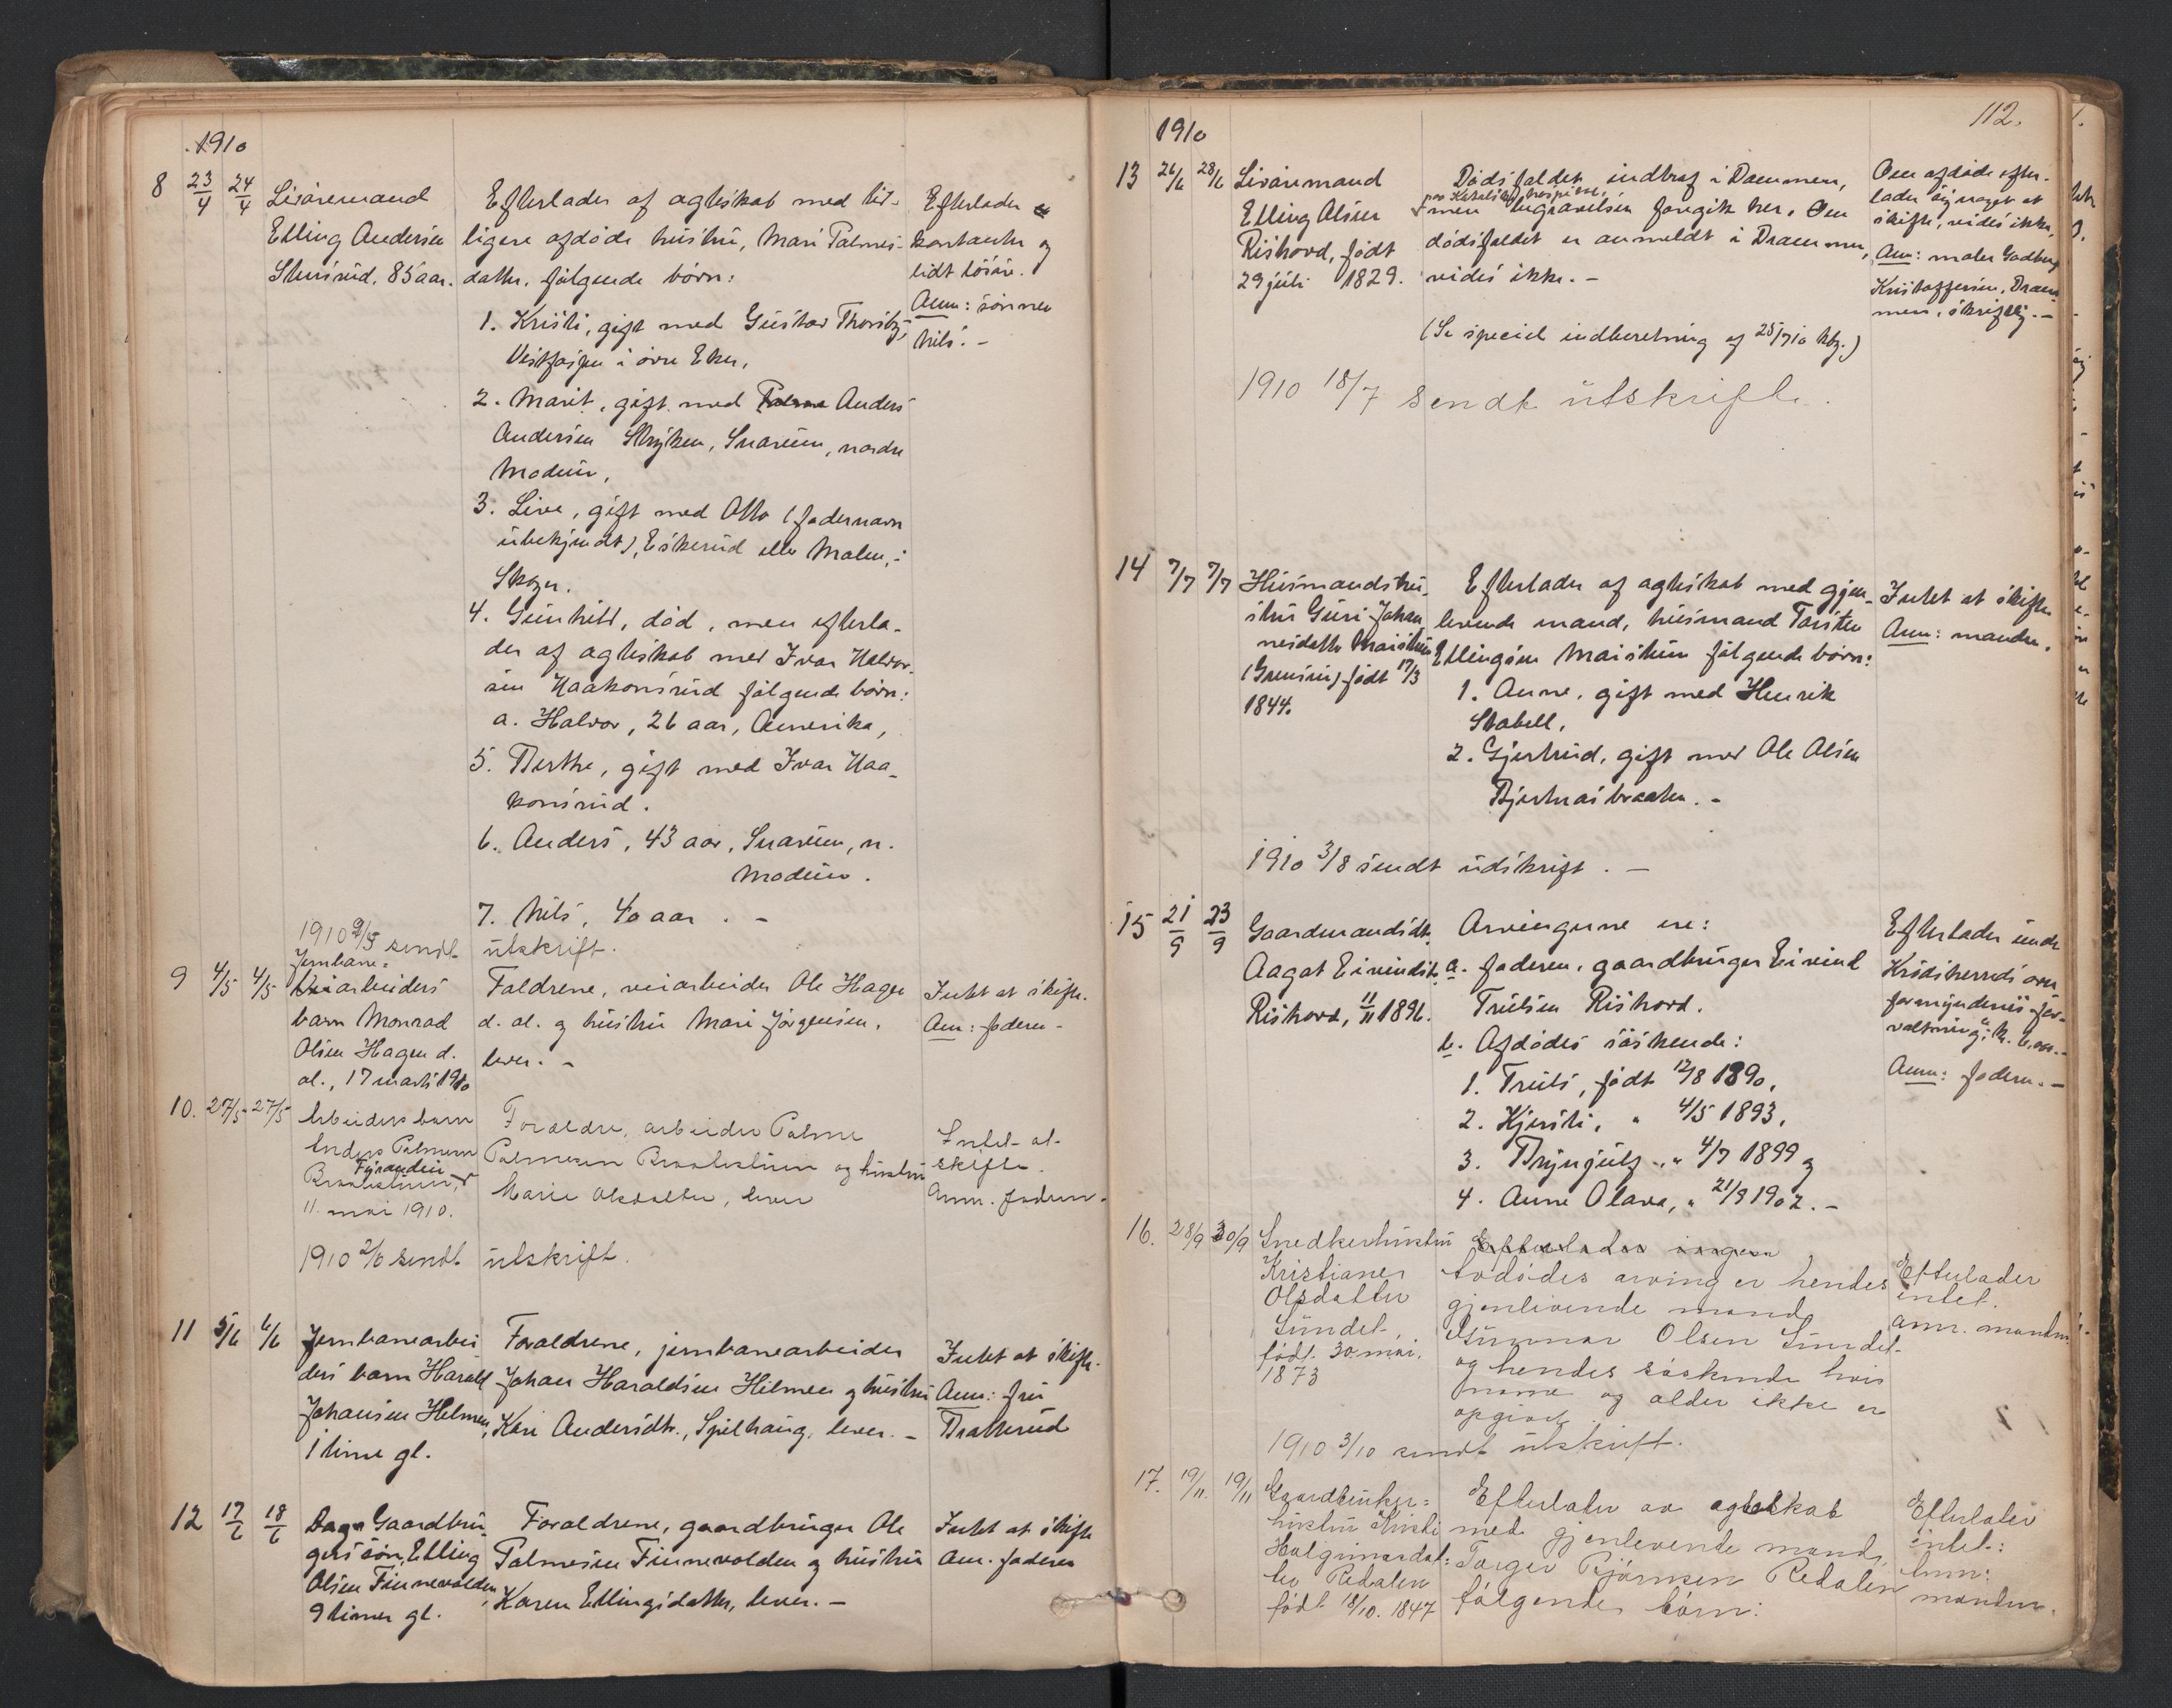 1910
8 23/4 24/4 Livöremand
Elling Andersen
Stensrud, 85 aar.
Efterlader af ægteskab med tid-
ligere afdöde hustru, Mari Palmes-
datter, fölgende börn:
1. Kristi, gift med Gustav
Vestfossen i övre Eker,
2. Marit, gift med Anders
Andersen Stryken, Snarum, nordre
Modum,
3. Live, gift med Otto (fadernavn
ubekjendt), Eskerud eller Malen, i
Skoger.
4. Gunhild, död, men efterla-
der af ægteskab med Ivar Halvor-
sen Haakonsrud fölgende börn:
a. Halvor, 26 aar, Amerika,
5. Berthe, gift med Ivar Haa-
konsrud.
6. Anders, 43 aar, Snarum, n.
Modum.
7. Nils, 40 aar. -
Efterlader
kontanter og
lidt lösöre.
Anm: sönnen
Nils. -
1910 9/5 sendt utskrift.
9 4/5 4/5 Jernbane-
arbeiders
barn Monrad
Olsen Hagen d.
al., 17 marts 1910
Foældrene, veiarbeider Ole Hagen
d. al. og hustru Mari Jörgensen,
lever. -
Intet at skifte.
Am: faderen -
10. 27/5 27/5 Arbeiders barn
Anders Palmesen
Braatestuen,
11. mai 1910.
Foraeldre, arbeider Palme
Palmesen Braatestuen og hustru
Marie Olsdatter, lever
Intet at
skifte.
Anm. faderen.
1910 2/6 sendt utskrift.
11 5/6 6/6 Jernbanearbei-
ders barn Harald
Johansen Hilmen,
1 time gl.
Foraldrene, jernbanearbeider
Johan Haraldsen Hilmen og hustru
Kari Andersdtr., Spilhaug, lever. -
Intet at skifte.
Anm: fru
Bratterud
12 17/6 18/6 Gaardbru-
gers sön, Elling
Olsen Finnevolden,
9 timer gl.
Foraldrene, gaardbruger Ole
Palmesen Finnevolden og hustru
Karen Ellingsdatter, lever. -
Intet at skifte
Am. faderen
112.
1910
13 26/6 28/6 Livöremand
Elling Olsen
Rishovd, født
29 juli 1829.
Dødsfaldet indtraf i Drammen,
paa Katolsk hospital,
men begravelsen foregik her. Om
dödsfaldet er anmeldt i Drammen,
vides ikke. -
(Se speciel indberetning af 25/7 10 hbg.)
Om afdöde efter-
lader sig noget at
skifte, vides ikke,
Anm: maler Gadberg
Kristoffersen, Dram-
men, skriftlig. -
1910 18/7 sendt utskrift.
14 7/7 7/7 Husmandshu-
stru Guri Johan-
nesdatter Maistuen
(Grensen) født 17/3
1844.
Efterlader af ægteskab med gjen-
levende mand, husmand Torsten
Ellingsen Maistuen fölgende börn:
1. Anne, gift med Henrik
Stabell,
2. Gjertrud, gift med Ole Olsen
Bjertnæsbraaten. -
Intet at skifte
Anm: manden.
1910 3/8 sendt udskrift. -
15 21/9 23/9 Gaardmandsdtr.
Aagot Eivindsdtr.
Riskovd, 11/11 1896.
Arvingerne ere:
a. faderen, gaardbruger Eivind
Trulsen Riskovd.
b. Afdödes söskende:
1. Truls, født 12/8 1890,
2. Kjersti, " 4/5 1893,
3. Bryngulf " 4/7 1899 og
4. Anne Olava, " 21/9 1902. -
Efterlader under
Krödsherreds over
formynderies for-
valtning.
Anm: faderen. -
16. 28/9 30/9 Snedkerhustru
Kristiane
Olsdatter
Sundet,
født 30. mai.
1873
Efterlader ingen
Avdödes arving er hendes
gjenlevende mand
Gunnar Olsen Sundet
og hendes söskende hvis
navne og alder ikke er
opgivet.
Efterlader
intet.
anm. manden.
1910 3/10 sendt utskrift.
17. 19/11. 19/11 Gaardbruker-
hustru Kristi
Halgrimsdat-
ter Redalen
født 18/10. 1847
Efterlater av egteskab
med gjenlevende mand,
Torger Björnsen Redalen
følgende börn:
Efterlater
intet:
Anm:
manden.